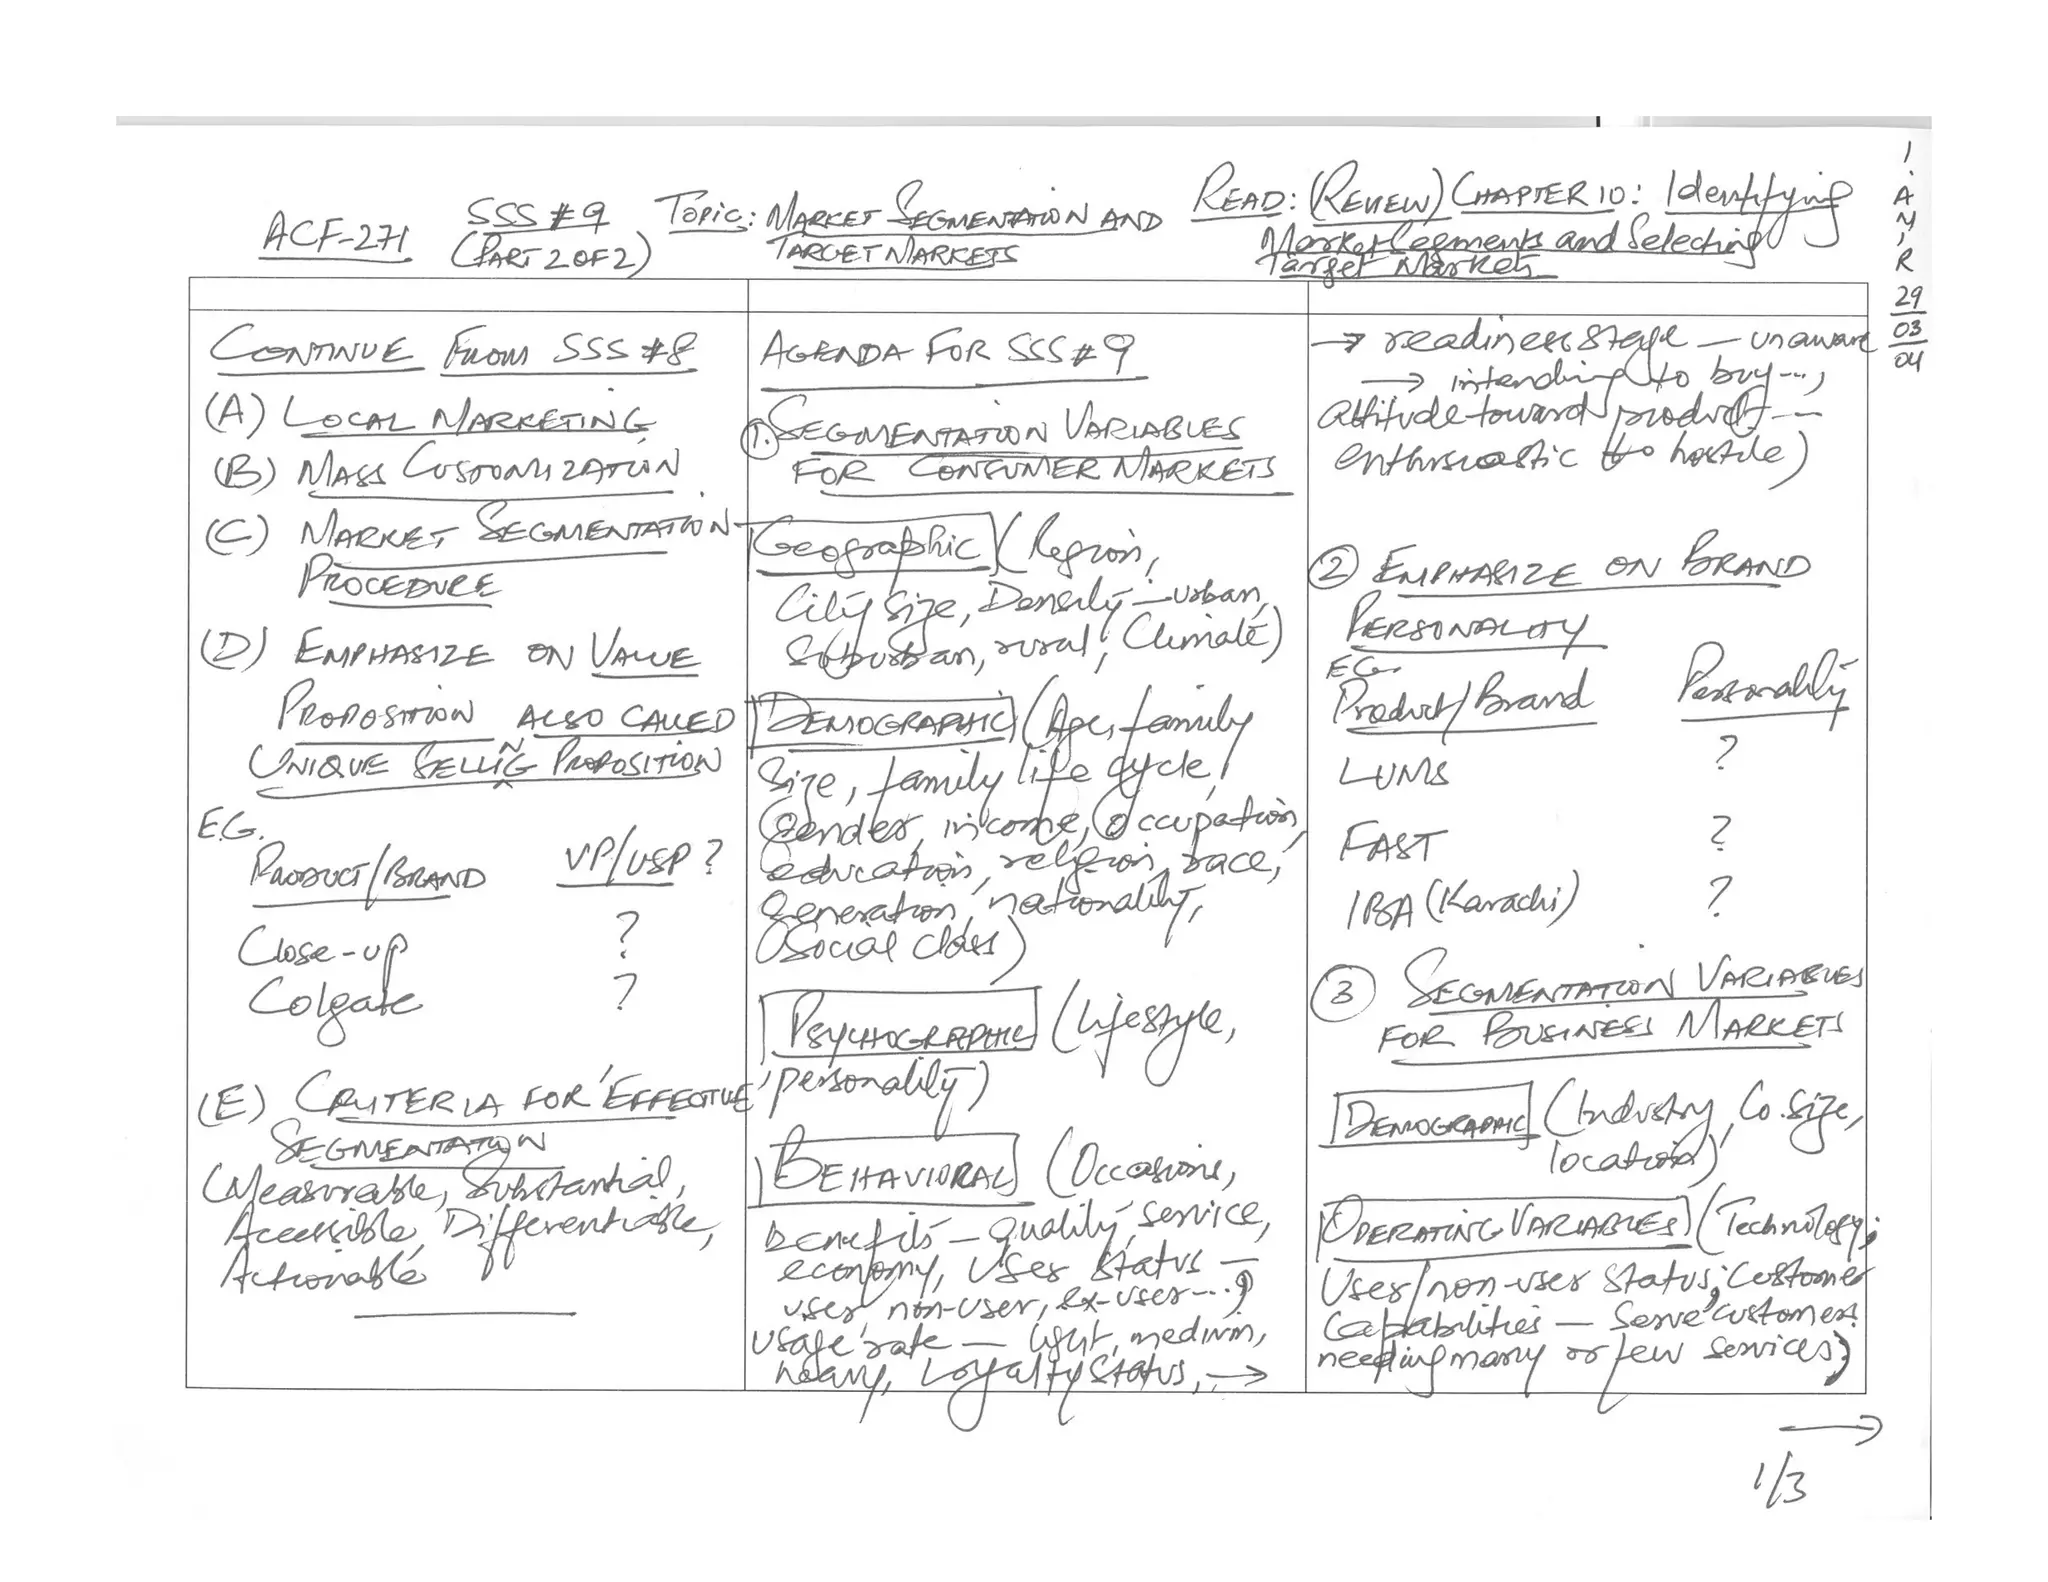 ACF-271
SSS #9
(PART 2 OF 2)
TOPIC: MARKET SEGMENTATION AND
TARGET MARKETS
READ: (REVIEW) CHAPTER 10: Identifying
Market Segments and Selecting
Target Markets
I
.
A
M
I
R
29
03
04
CONTINUE FROM SSS #8
(A) LOCAL MARKETING
(B) MASS CUSTOMIZATION
(C) MARKET SEGMENTATION
PROCEDURE
(D) EMPHASIZE ON VALUE
PROPOSITION ALSO CALLED
UNIQUE SELLING PROPOSITION
E.G.
PRODUCT/BRAND VP/USP?
Close-up ?
Colgate ?
(E) CRITERIA FOR 'EFFECTIVE'
SEGMENTATION
(Measurable, Substantial,
Accessible, Differentiable,
Actionable
AGENDA FOR SSS #9
1. SEGMENTATION VARIABLES
FOR CONSUMER MARKETS
Geographic (Region,
City size, Density – urban,
Suburban, rural, Climate)
DEMOGRAPHIC (Age, family
size, family life cycle,
Gender, income, Occupation,
education, religion, race,
generation, nationality,
social class)
PSYCHOGRAPHIC (Lifestyle,
personality)
BEHAVIORAL (Occasions,
Benefits – quality, service,
economy, User Status –
user, non-user, ex-user...,
usage rate – light, medium,
heavy, Loyalty status, →
→ readiness stage – unaware
→ intending to buy...,
attitude toward product...
enthusiastic to hostile)
2 EMPHASIZE ON BRAND
PERSONALITY
E.G.
Product/Brand Personality
LUMS ?
FAST ?
IBA (Karachi) ?
3 SEGMENTATION VARIABLES
FOR BUSINESS MARKETS
DEMOGRAPHIC (Industry, Co. size,
location)
OPERATING VARIABLES (Technology;
User/non-user status; Customer
Capabilities – Serve customers
needing many or few services)
→
1/3